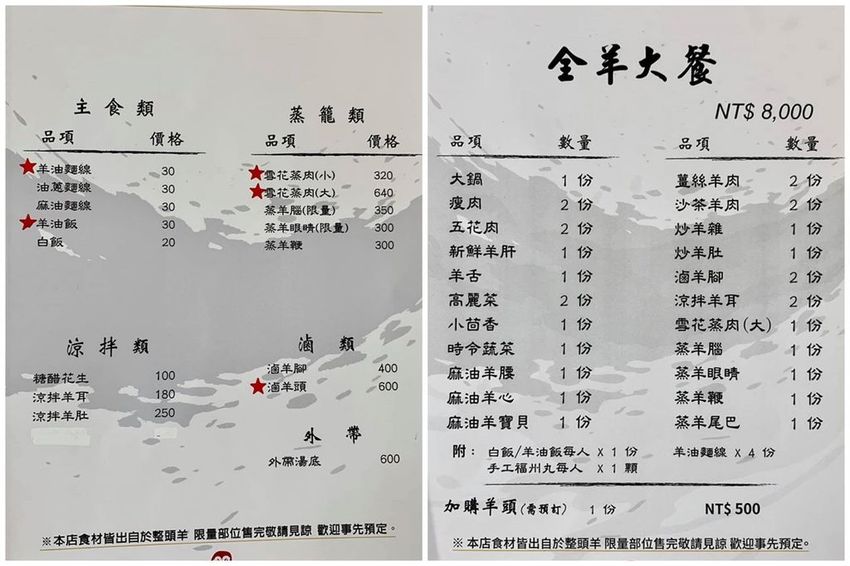 主食類
品項 價格
羊油麵線 30
油蔥麵線 30
麻油麵線 30
羊油飯 30
白飯 20
蒸籠類
品項 價格
雪花蒸肉(小) 320
雪花蒸肉(大) 640
蒸羊腦(限量) 350
蒸羊眼睛(限量) 300
蒸羊鞭 300
涼拌類
糖醋花生 100
涼拌羊耳 180
涼拌羊肚 250
滷類
滷羊腳 400
滷羊頭 600
外帶
外帶湯底 600
※本店食材皆出自於整頭羊 限量部位售完敬請見諒 歡迎事先預定。
全羊大餐
NT$ 8,000
品項 數量
大鍋 1 份
瘦肉 2 份
五花肉 2 份
新鮮羊肝 1 份
羊舌 1 份
高麗菜 2 份
小茴香 1 份
時令蔬菜 1 份
麻油羊腰 1 份
麻油羊心 1 份
麻油羊寶貝 1 份
品項 數量
薑絲羊肉 2 份
沙茶羊肉 2 份
炒羊雜 1 份
炒羊肚 1 份
滷羊腳 2 份
涼拌羊耳 2 份
雪花蒸肉(大) 1 份
蒸羊腦 1 份
蒸羊眼睛 1 份
蒸羊鞭 1 份
蒸羊尾巴 1 份
附: 白飯/羊油飯每人 X 1 份 羊油麵線 X 4 份
手工福州丸每人 X 1 顆
加購羊頭(需預訂) 1 份 NT$ 500
※ 本店食材皆出自於整頭羊 限量部位售完敬請見諒 歡迎事先預定。